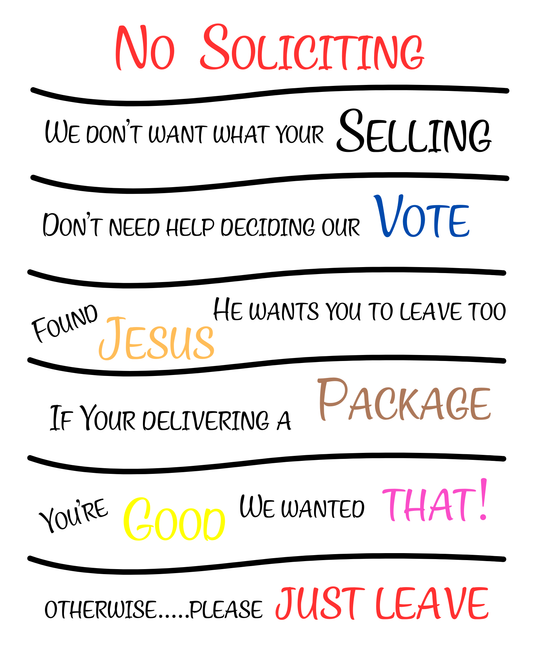 No Soliciting
We don't want what your Selling
Don't need help deciding our Vote
Found Jesus He wants you to leave too
If Your delivering a Package
You're Good We wanted that!
otherwise.....please just leave